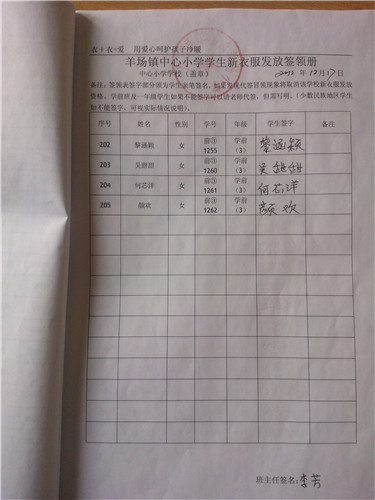 衣+衣=爱 用爱心呵护孩子冷暖
羊场镇中心小学学生新衣服发放签领册
中心小学学校（盖章） 2012年12月17日
备注：签领表签字部分须为学生亲笔签名，如果发现代签冒领现象将取消该学校新衣服发放
资格。学前班及一年级学生如果不能签字可以请老师代签，但需写明。（少数民族地区学生
如不能签字，可视实际情况说明）。
序号 姓名 性别 学号 年级 学生签字 备注
202 黎涵颖 女 前③1255 学前（3） 黎涵颖
203 吴甜甜 女 前③1260 学前（3） 吴甜甜
204 何芯洋 女 前③1261 学前（3） 何芯洋
205 颜欢 女 前③1262 学前（3） 颜欢
班主任签名：李芳